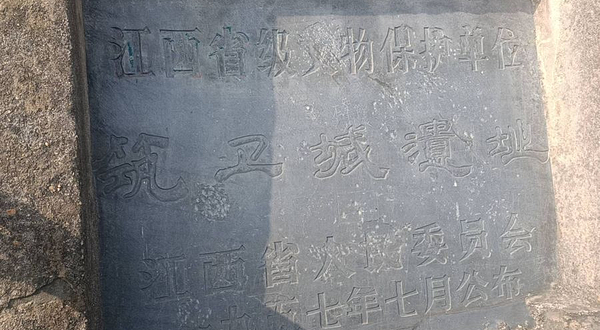 江西省级文物保护单位
筑卫城遗址
江西省人民委员会
七年七月公布